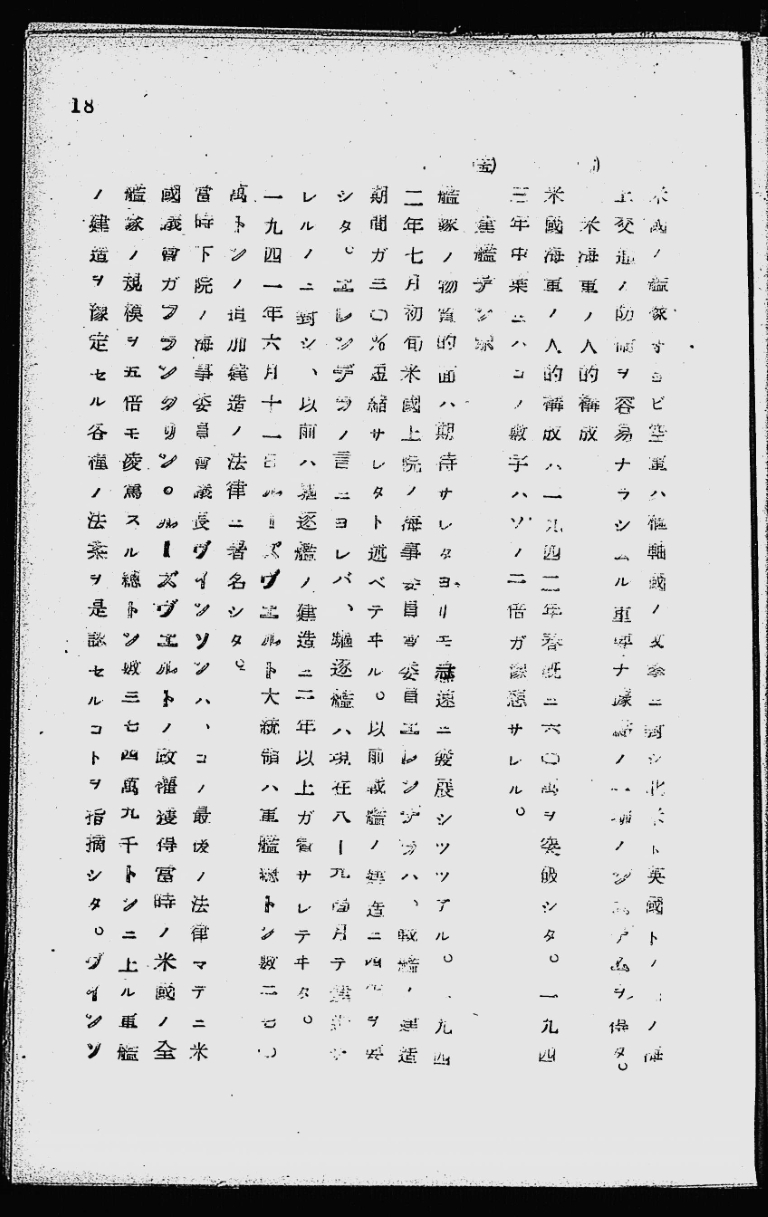 18
米國ノ艦隊オヨビ空軍ハ樞軸國ノ攻拳ニ對シ北米ト英國トノ ノ海
上交通ノ防衞ヲ容易ナラシムル重要ナ ノ一 ノ ヲ得タ。
米海軍ノ人的稱放
米國海軍ノ人的稱放ハ一九四二年春既ニ六〇萬ヲ突破シタ。一九四
三年中栗ニハコノ數字ハソノ二倍ガ豫想サレル。
建艦
艦隊ノ物質的面ハ期待サレタヨリモ急速ニ發展シツツアル。一九四
二年七月初旬米國上院ノ海事委員會委員エレンデラハ、戰艦ノ建造
期間ガ三〇%短縮サレタト述ベテヰル。以前戰艦ノ建造ニ四年ヲ要
シタ。エレンデラノ言ニヨレバ、驅逐艦ハ現在八ー九箇月デ建造サ
レルノニ對シ、以前ハ驅逐艦ノ建造ニ二年以上ガ費サレテヰタ。
一九四一年六月十一日ルーズヴエルト大統領ハ軍艦總トン數二七〇
萬トンノ追加建造ノ法律ニ署名シタ。
當時下院ノ海事委員會議長ヴインソンハ、コノ最後ノ法律マデニ米
國議會ガフランクリン。ルーズヴエルトノ政權獲得當時ノ米國ノ全
艦隊ノ規模ヲ五倍モ凌駕スル總トン數三七四萬九千トンニ上ル軍艦
ノ建造ヲ豫定セル各種ノ法案ヲ是認セルコトヲ指摘シタ。ヴインソ